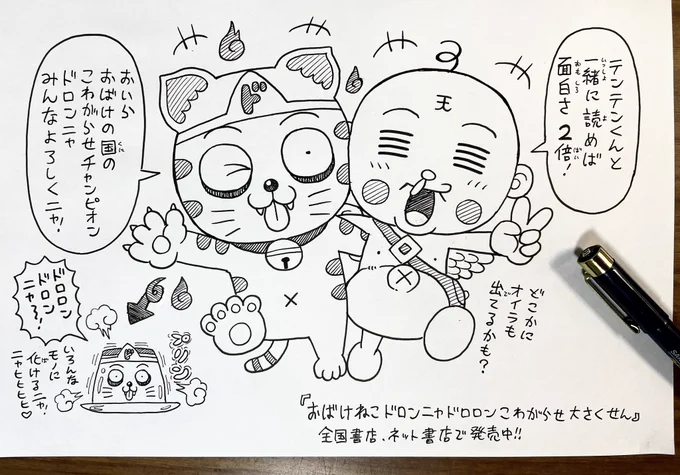 テンテンくんと
一緒に読めば
面白さ2倍!
いっしょ
よ
おもしろ
ばい
おいら
おばけの国の
こわがらせチャンピオン
ドロンニャ
みんなよろしくニャ!
くに
ド
天
どこかに
オイラも
出てるかも?
で
ドロロン
ドロロン
ニャろ〜!
いろんな
モノに
化けるニャ!
ニャヒヒヒヒ♡
ば
ド
プリリン
『おばけねこドロンニャドロロンこわがらせ大さくせん』
全国書店、ネット書店で発売中!!